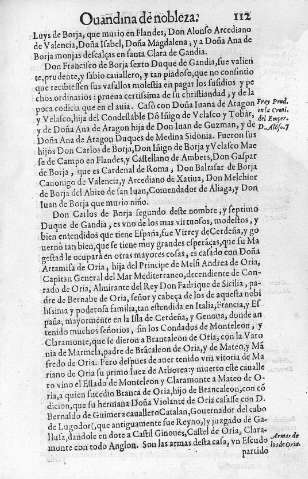 Ouandina de nobleza. 112
Luys de Borja, que murio en Flandes, Don Alonso Arcediano
de Valencia, Doña Isabel, Doña Magdalena, y a Doña Ana de
Borja monjas descalças en santa Clara de Gandia.
Don Francisco de Borja sexto Duque de Gandia, fue valien
te, prudente, y sabio cauallero, y tan piadoso, que no consintio
que recibiessen sus vasallos molestia en pagar los susidios y pe
chos ordinarios: penera certissima de su christiandad, y de la
poca codicia que en el auia. Casò con Doña Iuana de Aragon
y Velasco, hija del Condestable Dõ Iñigo de Velasco y Tobár,
y de Doña Ana de Aragon hija de Don Iuan de Guzman, y de
Doña Ana de Aragon Duques de Medina Sidonia. Fueron sus
hijos Don Carlos de Borja, Don Iñigo de Borja y Velasco Mae
se de Campo en Flandes, y Castellano de Ambers, Don Gaspar
de Borja, que es Cardenal de Roma, Don Baltasar de Borja
Canonigo de Valencia, y Arcediano de Xatiua, Don Melchior
de Borja del Abito de san Iuan, Comendador de Aliaga, y Don
Iuan de Borja que murio niño.
Frey Prud.
en la Coroni.
del Emper.
D. Alõso 7
Don Carlos de Borja segundo deste nombre, y septimo
Duque de Gandia, es vno de los mas virtuosos, modestos, y
bien entendidos que tiene España, fue Virrey de Cerdeña, y go
uernò tan bien, que se tiene muy grandes esperãças, que su Ma
gestad le ocuparà en otras mayores cosas, es casado con Doña
Artamisa de Oria, hija del Principe de Melfi Andrea de Oria,
Capitan General del Mar Mediterraneo, decendiente de Con-
rado de Oria, Almirante del Rey Don Fadrique de Sicilia, pa-
dre de Bernabe de Oria, señor y cabeça de los de aquella nobi
lissima y poderosa familia, tan estendida en Italia, Francia, y Es
paña, mayormente en la Isla de Cerdeña, y Genoua, donde an
tenido muchos señorios, sin los Condados de Monteleon, y
Claramonte, que se dieron a Brancaleon de Oria, con la Varo
nia de Marmela, padre de Brãcaleon de Oria, y de Mateo, y Mã
fredo de Oria. Pero despues de auer tenido vna vitoria de Ma
riano de Oria su primo Iuez de Arborea: y muerto este caualle
ro vino el Estado de Monteleon y Claramonte a Mateo de O-
ria, a quien sucedio Branca de Oria, hijo de Brancaleon, con cõ
dicion, que su hermana Doña Violante de Oria casasse con D.
Bernaldo de Guimera cauallero Catalan, Gouernador del cabo
de Lugodor (que antiguamente fue Reyno) y juzgado de Ga-
llura, dandole en dote a Castil Ginoues, Castel de Oria, Clara-
monte con todo Anglon. Son las armas desta casa, vn Escudo
Armas de
los de Oria.
partido